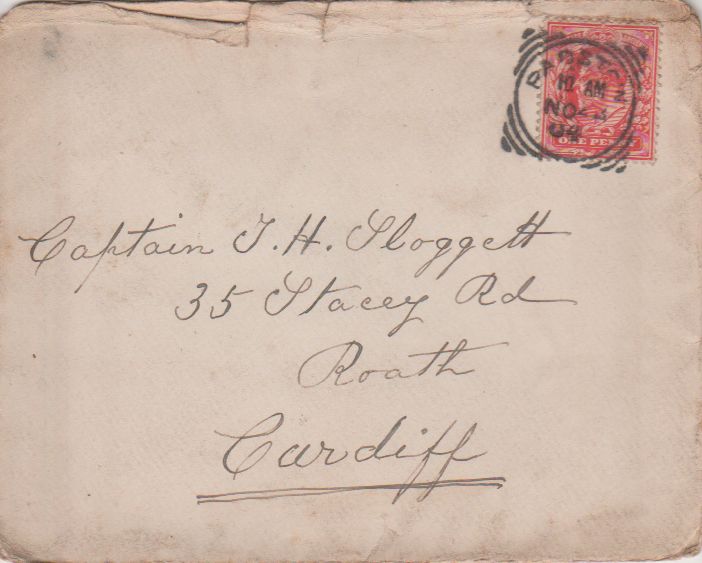 PADSTOW
10 AM
NO 3
04
ONE PENNY
Captain T. H. Sloggett
35 Stacey Rd
Roath
Cardiff